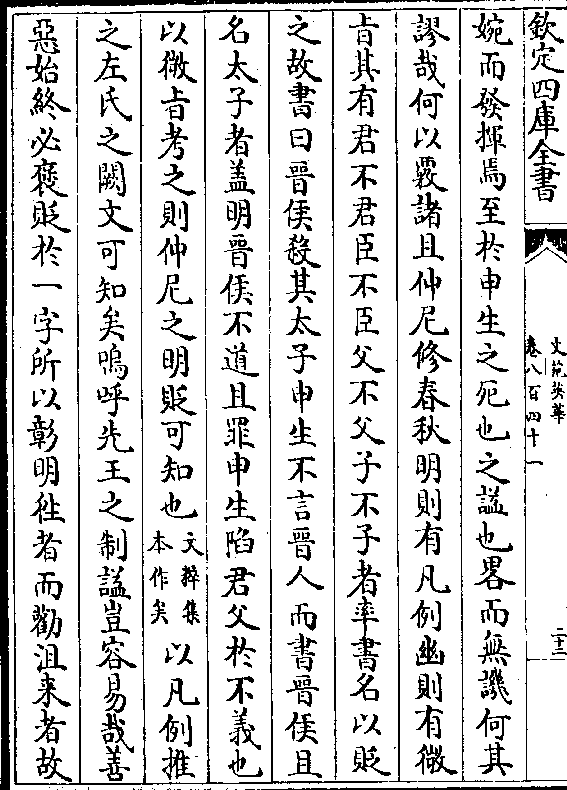 欽定四庫全書
文苑英華
卷八百四十一
二十二
婉而發揮焉至於申生之死也之諡也畧而無譏何其
謬哉何以覈諸且仲尼修春秋明則有凡例幽則有微
㫖其有君不君臣不臣父不父子不子者率書名以貶
之故書曰晉侯殺其太子申生不言晉人而書晉侯且
名太子者盖明晉侯不道且罪申生陷君父於不義也
以微㫖考之則仲尼之明貶可知也文粹集本作矣以凡例推
之左氏之闕文可知矣嗚呼先王之制諡豈容易哉善
惡始終必褒貶於一字所以彰明徃者而勸沮来者故